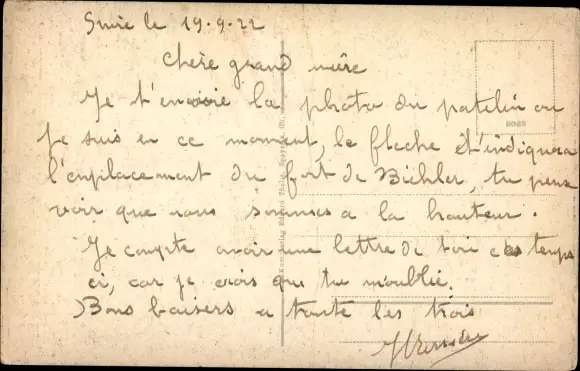 le 19.9.22
Chere grand mère
Je t'envoie la photo du patelin ou
je suis en ce moment, la fleche t'indiquera
l'enplacement du fort de Bichler, tu peus
voir que nous sommes a la hauteur.
Je compte avoir une lettre de toi ces temps
ci, car je crois que tu m'oublie.
Bons baisers a toute les trois